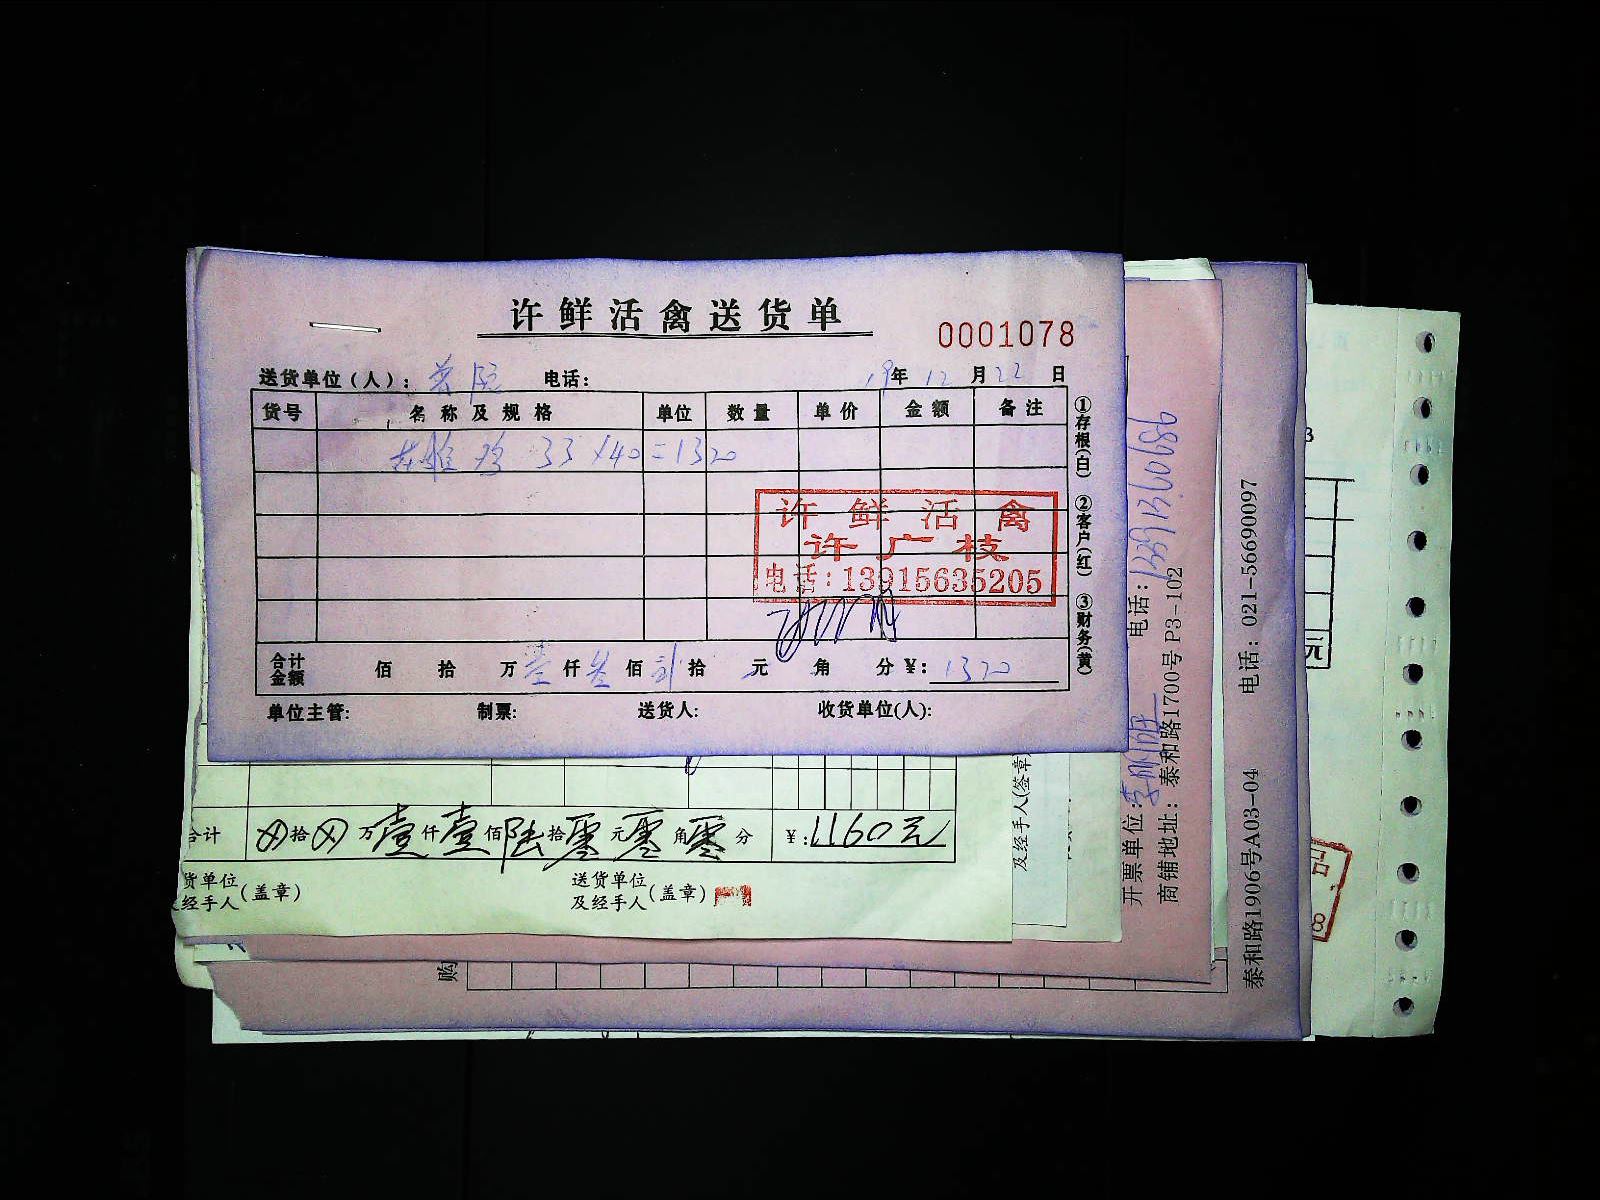 许鲜活禽送货单
0001078
送货单位(人): 电话: 19年12月22日
货号 名称及规格 单位 数量 单价 金额 备注
鸡 33×40=1320
许鲜活禽
许广枝
电话:13915635205
合计金额 佰 拾 万壹仟叁佰贰拾 元 角 分 ¥: 1320
单位主管: 制票: 送货人: 收货单位(人):
①存根(白) ②客户(红) ③财务(黄)
合计 拾 万壹仟壹佰陆拾零元零角零分 ¥:1160元
货单位及经手人(盖章) 送货单位及经手人(盖章)
及经手人(签章
开票单位: 电话:
商铺地址: 泰和路1700号P3-102
泰和路1906号A03-04 电话: 021-56690097
购
元